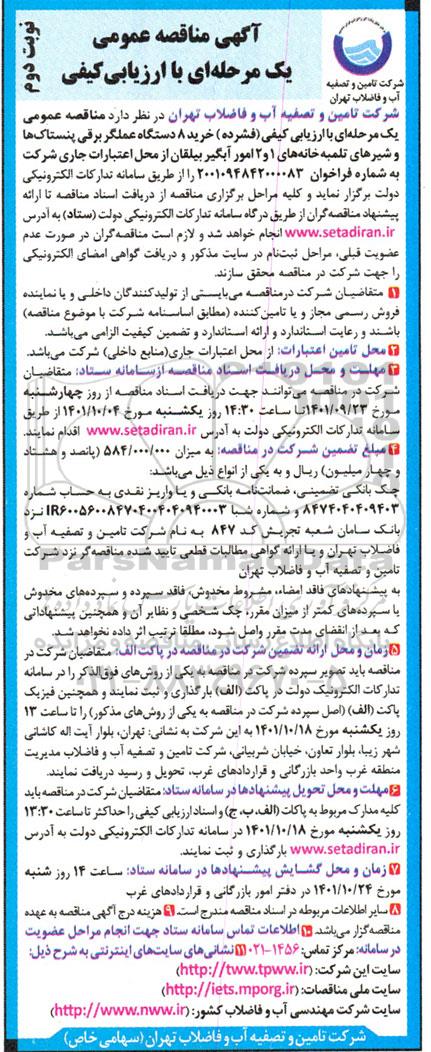 نوبت دوم
آگهی مناقصه عمومی
یک مرحله‌ای با ارزیابی کیفی
شرکت تامین و تصفیه
آب و فاضلاب تهران
شرکت تامین و تصفیه آب و فاضلاب تهران در نظر دارد مناقصه عمومی
یک مرحله‌ای با ارزیابی کیفی (فشرده) خرید ۸ دستگاه عملگر برقی پنستاک‌ها
و شیرهای تلمبه خانه‌های ۱و۲ امور آبگیر بیلقان از محل اعتبارات جاری شرکت
به شماره فراخوان ۲۰۰۱۰۹۴۸۴۲۰۰۰۰۸۳ را از طریق سامانه تدارکات الکترونیکی
دولت برگزار نماید و کلیه مراحل برگزاری مناقصه از دریافت اسناد مناقصه تا ارائه
پیشنهاد مناقصه‌گران از طریق درگاه سامانه تدارکات الکترونیکی دولت (ستاد) به آدرس
www.setadiran.ir انجام خواهد شد و لازم است مناقصه‌گران در صورت عدم
عضویت قبلی، مراحل ثبت‌نام در سایت مذکور و دریافت گواهی امضای الکترونیکی
را جهت شرکت در مناقصه محقق سازند.
۱ متقاضیان شرکت در مناقصه می‌بایستی از تولیدکنندگان داخلی و یا نماینده
فروش رسمی مجاز و یا تامین‌کننده (مطابق اساسنامه شرکت با موضوع مناقصه)
باشند و رعایت استاندارد و ارائه استاندارد و تضمین کیفیت الزامی می‌باشد.
۲ محل تامین اعتبارات: از محل اعتبارات جاری (منابع داخلی) شرکت می‌باشد.
۳ مهلت و محل دریافت اسناد مناقصه از سامانه ستاد: متقاضیان
شرکت در مناقصه می‌توانند جهت دریافت اسناد مناقصه از روز چهارشنبه
مورخ ۱۴۰۱/۰۹/۲۳ تا ساعت ۱۴:۳۰ روز یکشنبه مورخ ۱۴۰۱/۱۰/۰۴ از طریق
سامانه تدارکات الکترونیکی دولت به آدرس www.setadiran.ir اقدام نمایند.
۴ مبلغ تضمین شرکت در مناقصه: به میزان ۵۸۴/۰۰۰/۰۰۰ (پانصد و هشتاد
و چهار میلیون) ریال و به یکی از انواع ذیل می‌باشد:
چک بانکی تضمینی، ضمانت‌نامه بانکی و یا واریز نقدی به حساب شماره
۸۴۷۴۰۴۰۴۰۹۴۰۳ و شماره شبا نزد
بانک سامان شعبه تجریش کد ۸۴۷ به نام شرکت تامین و تصفیه آب و
فاضلاب تهران و یا ارائه گواهی مطالبات قطعی تایید شده مناقصه‌گر نزد شرکت
تامین و تصفیه آب و فاضلاب تهران
به پیشنهادهای فاقد امضاء، مشروط مخدوش، فاقد سپرده و سپرده‌های مخدوش
یا سپرده‌های کمتر از میزان مقرر، چک شخصی و نظایر آن و همچنین پیشنهاداتی
که بعد از انقضای مدت مقرر واصل شود، مطلقا ترتیب اثر داده نخواهد شد.
۵ زمان و محل ارائه تضمین شرکت در مناقصه در پاکت الف: متقاضیان شرکت در
مناقصه باید تصویر سپرده شرکت در مناقصه به یکی از روش‌های فوق‌الذکر را در سامانه
تدارکات الکترونیک دولت در پاکت (الف) بارگذاری و ثبت نمایند و همچنین فیزیک
پاکت (الف) (اصل سپرده شرکت در مناقصه به یکی از روش‌های مذکور) را تا ساعت ۱۳
روز یکشنبه مورخ ۱۴۰۱/۱۰/۱۸ به این شرکت به نشانی: تهران، بلوار آیت اله کاشانی
شهر زیبا، بلوار تعاون، خیابان شربیانی، شرکت تامین و تصفیه آب و فاضلاب مدیریت
منطقه غرب واحد بازرگانی و قراردادهای غرب، تحویل و رسید دریافت نمایند.
۶ مهلت و محل تحویل پیشنهادها در سامانه ستاد: متقاضیان شرکت در مناقصه باید
کلیه مدارک مربوط به پاکات (الف، ب، ج) و اسناد ارزیابی کیفی را حداکثر تا ساعت ۱۳:۳۰
روز یکشنبه مورخ ۱۴۰۱/۱۰/۱۸ در سامانه تدارکات الکترونیکی دولت به آدرس
www.setadiran.ir بارگذاری و ثبت نمایند.
۷ زمان و محل گشایش پیشنهادها در سامانه ستاد: ساعت ۱۴ روز شنبه
مورخ ۱۴۰۱/۱۰/۲۴ در دفتر امور بازرگانی و قراردادهای غرب
۸ سایر اطلاعات مربوطه در اسناد مناقصه مندرج است. ۹ هزینه درج آگهی مناقصه به عهده
مناقصه‌گزار می‌باشد. ۱۰ اطلاعات تماس سامانه ستاد جهت انجام مراحل عضویت
در سامانه: مرکز تماس: ۱۴۵۶-۰۲۱ ۱۱ نشانی‌های سایت‌های اینترنتی به شرح ذیل:
سایت این شرکت: (http://tww.tpww.ir)
سایت ملی مناقصات: (http://iets.mporg.ir)
سایت شرکت مهندسی آب و فاضلاب کشور: (http://www.nww.ir)
شرکت تامین و تصفیه آب و فاضلاب تهران (سهامی خاص)